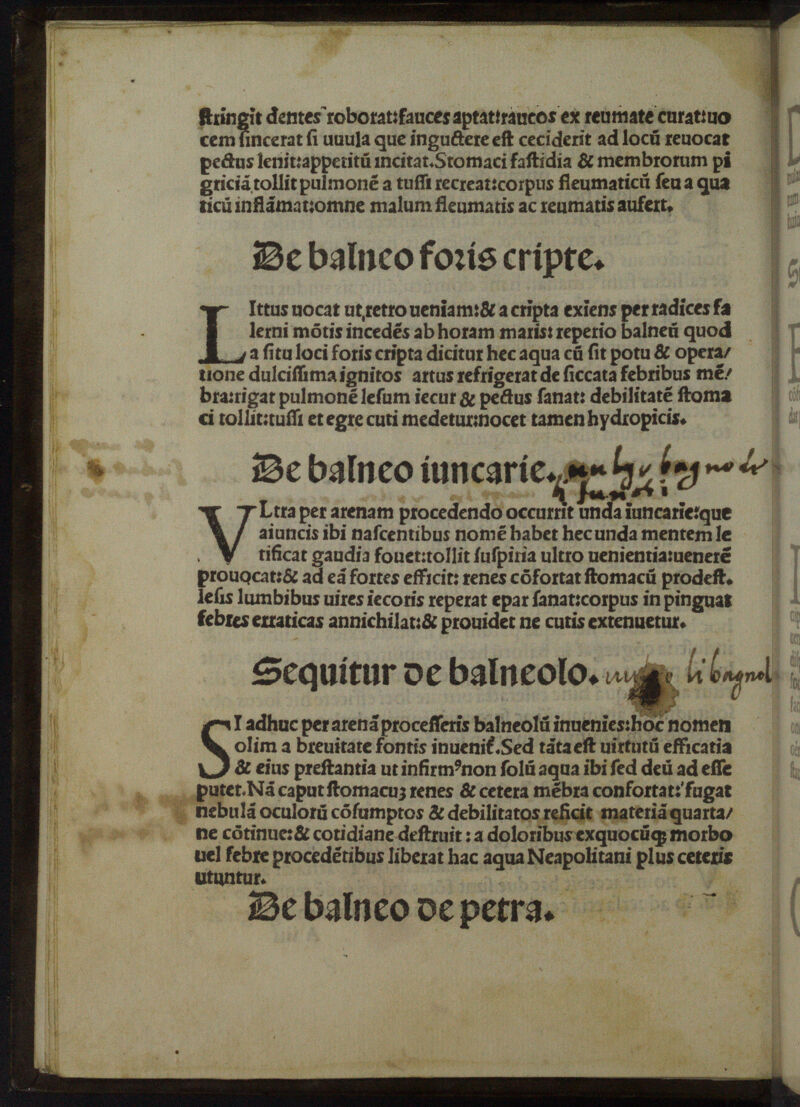 ſtringit dentes roborat:fauces aptat:raucos ex reumate curat:uo
cem ſincerat ſi uuula que inguctere eſt ceciderit ad locū reuocat
pectus lenit:appetitū incitat.Stomaci faſtidia & membrorum pi
griciā tollit pulmonē a tuſſi recreat:corpus fleumaticū ſeu a qua
ticū inflāmat:omne malum fleumatis ac reumatis aufert.
De balneo foꝛis cripte.
LIttus uocat ut,retro ueniam:& a cripta exiens per radices fa
lerni mōtis incedēs ab horam maris: reperio balneū quod
a ſitu loci foris cripta dicitur hec aqua cū ſit potu & opera/
tione dulciſſima ignitos artus refrigerat de ſiccata febribus mē/
bra:rigat pulmonē leſum iecur & pectus ſanat: debilitatē ſtoma
ci tollit:tuſſi et egre cuti medetur:nocet tamen hydropicis.
De balneo iuncarie.
VLtra per arenam procedendo occurrit unda iuncarie:que
a iuncis ibi naſcentibus nomē habet hec unda mentem le
tificat gaudia fouet:tollit ſuſpiria ultro uenientia:uenerē
prouocat:& ad eā fortes efficit: renes cōfortat ſtomacū prodeſt.
leſis lumbibus uires iecoris reperat epar ſanat:corpus in pinguat
febres erraticas annichilat:& prouidet ne cutis extenuetur.
Sequitur de balneolo. li bagnol
SI adhuc per arenā proceſſeris balneolū inuenies:hoc nomen
olim a breuitate fontis inuenit.Sed tāta eſt uirtutū efficatia
& eius preſtantia ut infirmꝰ non ſolū aqua ibi ſed deū ad eſſe
putet.Nā caput ſtomacuʒ renes & cetera mēbra confortat:fugat
nebulā oculorū cōſumptos & debilitatos reficit materiā quarta/
ne cōtinue:& cotidiane deſtruit : a doloribus exquocūqꝫ morbo
uel febre procedētibus liberat hac aqua Neapolitani plus ceteris
utuntur.
De balneo de petra.